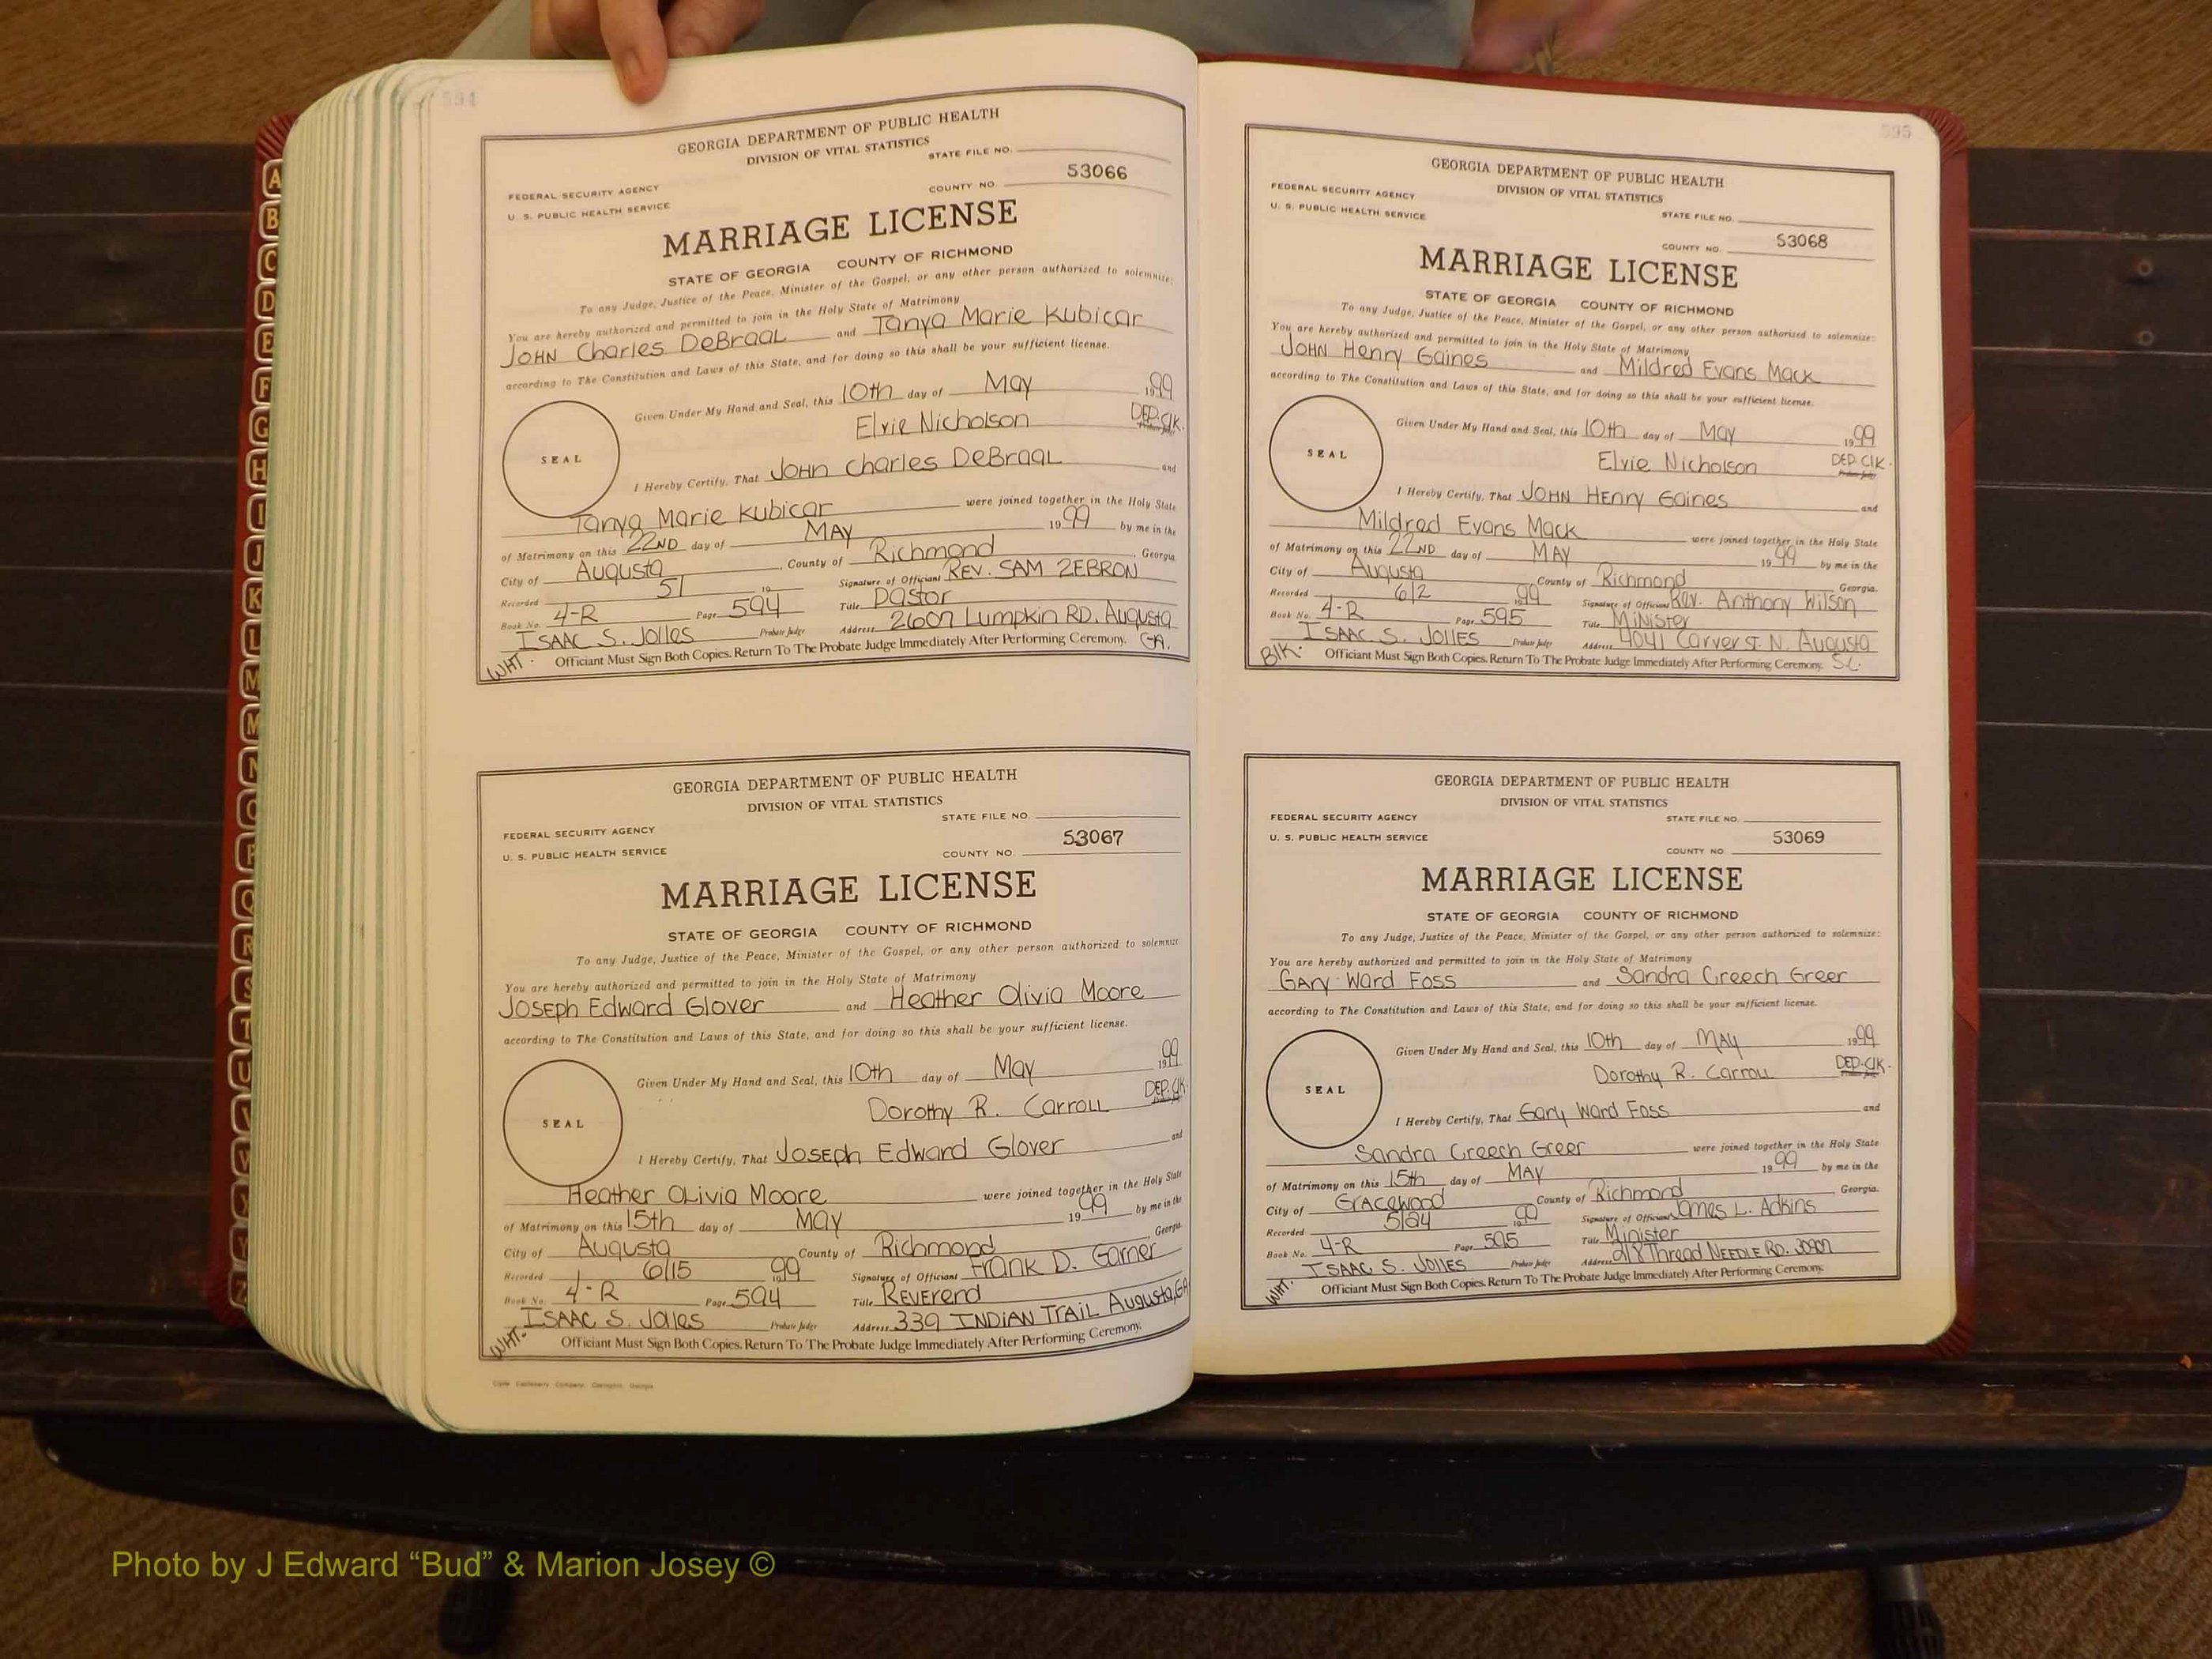 594
GEORGIA DEPARTMENT OF PUBLIC HEALTH
DIVISION OF VITAL STATISTICS
STATE FILE NO.
FEDERAL SECURITY AGENCY
COUNTY NO. 53066
U. S. PUBLIC HEALTH SERVICE
MARRIAGE LICENSE
STATE OF GEORGIA COUNTY OF RICHMOND
To any Judge, Justice of the Peace, Minister of the Gospel, or any other person authorized to solemnize:
You are hereby authorized and permitted to join in the Holy State of Matrimony
JOHN Charles DeBraaL and Tanya Marie Kubicar
according to The Constitution and Laws of this State, and for doing so this shall be your sufficient license.
Given Under My Hand and Seal, this 10th day of May 1999
Elvie Nicholson DEP. Clk.
SEAL
I Hereby Certify, That JOHN Charles DeBraaL and
Tanya Marie Kubicar were joined together in the Holy State
of Matrimony on this 22ND day of MAY 1999 by me in the
City of Augusta, County of Richmond, Georgia
Recorded 5/ 19 Signature of Officiant REV. SAM ZEBRON
Book No. 4-R Page 594 Title Pastor
ISAAC S. Jolles Probate Judge Address 2607 Lumpkin RD. Augusta
WHT. Officiant Must Sign Both Copies. Return To The Probate Judge Immediately After Performing Ceremony. GA.
GEORGIA DEPARTMENT OF PUBLIC HEALTH
DIVISION OF VITAL STATISTICS
STATE FILE NO.
FEDERAL SECURITY AGENCY
COUNTY NO. 53067
U. S. PUBLIC HEALTH SERVICE
MARRIAGE LICENSE
STATE OF GEORGIA COUNTY OF RICHMOND
To any Judge, Justice of the Peace, Minister of the Gospel, or any other person authorized to solemnize:
You are hereby authorized and permitted to join in the Holy State of Matrimony
JOSEph Edward Glover and Heather Olivia Moore
according to The Constitution and Laws of this State, and for doing so this shall be your sufficient license.
Given Under My Hand and Seal, this 10th day of May 1999
Dorothy R. Carroll DEP. Clk.
SEAL
I Hereby Certify, That JOSEph Edward Glover and
Heather OLivia Moore were joined together in the Holy State
of Matrimony on this 15th day of May 1999 by me in the
City of Augusta County of Richmond, Georgia
Recorded 6/15 1999 Signature of Officiant Frank D. Garner
Book No. 4-R Page 594 Title Reverend
ISAAC S. Jolles Probate Judge Address 339 INDIAN TRAiL Augusta, GA
WHT. Officiant Must Sign Both Copies. Return To The Probate Judge Immediately After Performing Ceremony.
595
GEORGIA DEPARTMENT OF PUBLIC HEALTH
DIVISION OF VITAL STATISTICS
FEDERAL SECURITY AGENCY
STATE FILE NO.
U. S. PUBLIC HEALTH SERVICE
COUNTY NO. 53068
MARRIAGE LICENSE
STATE OF GEORGIA COUNTY OF RICHMOND
To any Judge, Justice of the Peace, Minister of the Gospel, or any other person authorized to solemnize:
You are hereby authorized and permitted to join in the Holy State of Matrimony
JOHN Henry Gaines and Mildred Evans Mack
according to The Constitution and Laws of this State, and for doing so this shall be your sufficient license.
Given Under My Hand and Seal, this 10th day of May 1999
Elvie Nicholson DEP. Clk.
SEAL
I Hereby Certify, That JOHN HEnry Gaines and
Mildred Evans Mack were joined together in the Holy State
of Matrimony on this 22ND day of MAY 1999 by me in the
City of Augusta County of Richmond Georgia.
Recorded 6/2 1999 Signature of Officiant Rev. Anthony Wilson
Book No. 4-R Page 595 Title Minister
ISAAC S. JOllES Probate Judge Address 4041 Carver st. N. Augusta
BlK. Officiant Must Sign Both Copies. Return To The Probate Judge Immediately After Performing Ceremony. S.C.
GEORGIA DEPARTMENT OF PUBLIC HEALTH
DIVISION OF VITAL STATISTICS
FEDERAL SECURITY AGENCY
STATE FILE NO.
U. S. PUBLIC HEALTH SERVICE
COUNTY NO. 53069
MARRIAGE LICENSE
STATE OF GEORGIA COUNTY OF RICHMOND
To any Judge, Justice of the Peace, Minister of the Gospel, or any other person authorized to solemnize:
You are hereby authorized and permitted to join in the Holy State of Matrimony
GAry Ward Foss and Sandra Creech Greer
according to The Constitution and Laws of this State, and for doing so this shall be your sufficient license.
Given Under My Hand and Seal, this 10th day of MAy 1999
Dorothy R. Carroll DEP. Clk.
SEAL
I Hereby Certify, That Gary Ward Foss and
Sandra Creech Greer were joined together in the Holy State
of Matrimony on this 15th day of MAY 1999 by me in the
City of Gracewood County of Richmond Georgia.
Recorded 5/24 1999 Signature of Officiant James L. Adkins
Book No. 4-R Page 595 Title Minister
ISAAC S. JOllES Probate Judge Address 218 Thread NEEDLE RD. 30907
WHT. Officiant Must Sign Both Copies. Return To The Probate Judge Immediately After Performing Ceremony.
A
B
C
D
E
F
G
H
I
J
K
L
M
M
N
O
P
Q
R
S
T
U
V
W
X
Y
Z
Photo by J Edward “Bud” & Marion Josey ©